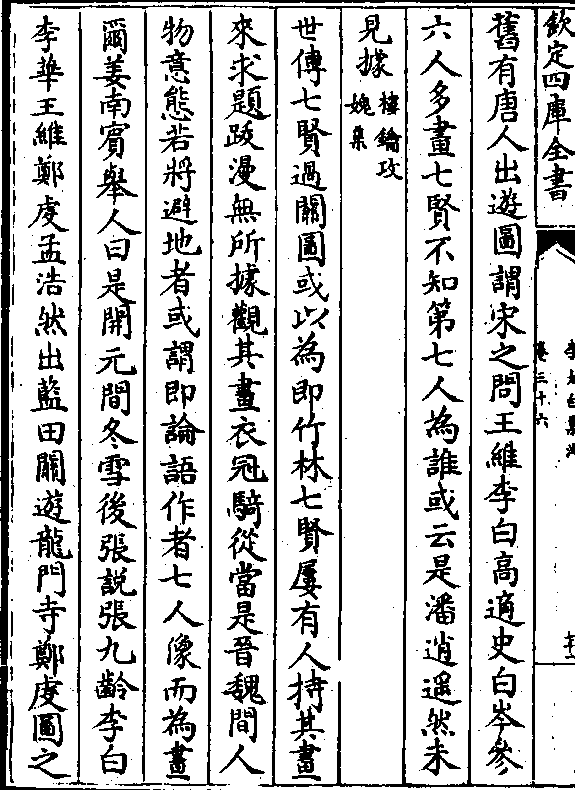 欽定四庫全書
卷三十六
舊有唐人出遊圖謂宋之問王維李白高適史白岑參
六人多畫七賢不知第七人為誰或云是潘逍遙然未
見據樓鑰攻
媿集
世傳七賢過關圖或以為即竹林七賢屢有人持其畫
來求題跋漫無所據觀其畫衣冠騎從當是晉魏間人
物意態若將避地者或謂即論語作者七人像而為畫
爾姜南賓舉人曰是開元間冬雪後張說張九齡李白
李華王維鄭虔孟浩然出藍田關遊龍門寺鄭虔圖之